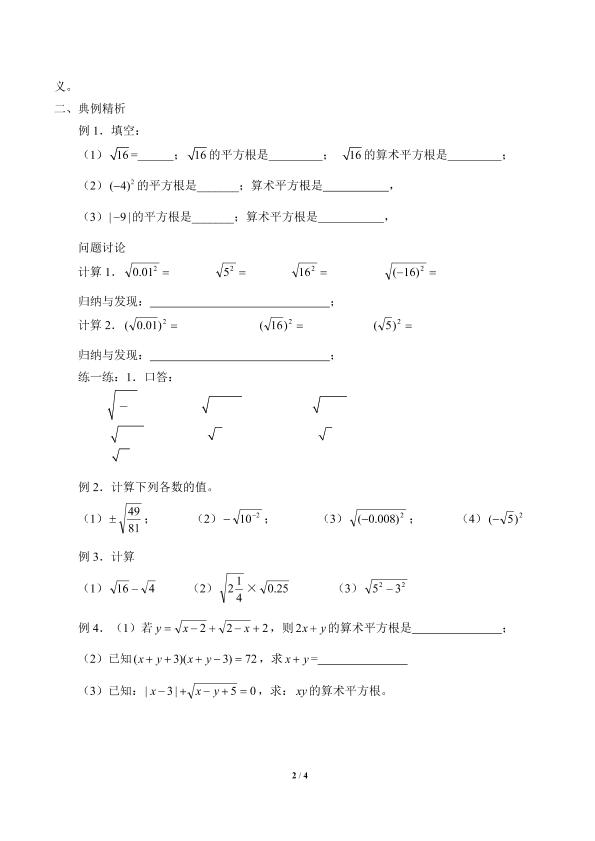 义。
二、典例精析
例 1．填空：
（1）√16 =______；√16 的平方根是_________； √16 的算术平方根是_________；
（2）(−4)² 的平方根是_______；算术平方根是___________，
（3）| −9 |的平方根是_______；算术平方根是___________，
问题讨论
计算 1．√0.01² = √5² = √16² = √(−16)² =
归纳与发现：______________________________；
计算 2．(√0.01)² = (√16)² = (√5)² =
归纳与发现：______________________________；
练一练：1．口答：
√− √ √
√ √ √
√
例 2．计算下列各数的值。
（1）±√(49/81)； （2）−√10⁻²； （3）√(−0.008)²； （4）(−√5)²
例 3．计算
（1）√16 − √4 （2）√(2 1/4) × √0.25 （3）√(5² − 3²)
例 4．（1）若 y = √(x − 2) + √(2 − x) + 2，则 2x + y 的算术平方根是_______________；
（2）已知 (x + y + 3)(x + y − 3) = 72，求 x + y =_______________
（3）已知：| x − 3 | + √(x − y + 5) = 0，求：xy 的算术平方根。
2 / 4